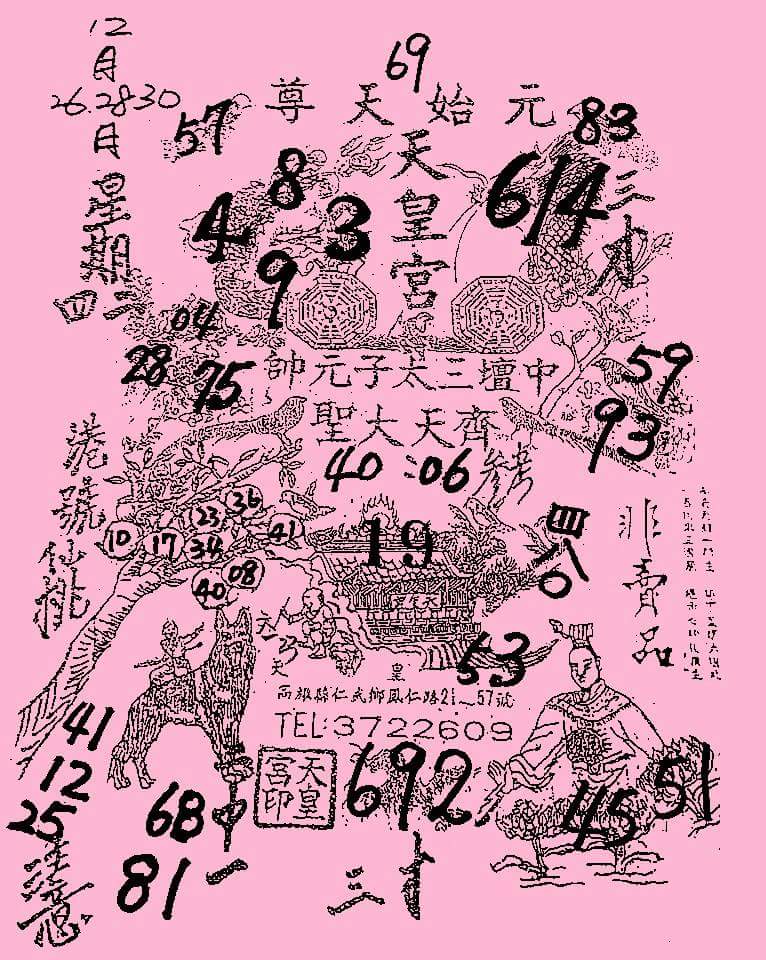 12
月
26.28.30
日
69
元始天尊
57
83
天皇宮
8
4 3
9
614
三才
星期
二四
04
28
75
59
93
中壇三太子元帥
齊天大聖
40:06
參考
港號仙桃
10 17 23 36 34 41 40 08
19
四
非賣品
53
天皇
高雄縣仁武鄉鳳仁路21~57號
TEL:3722609
天皇宮印
41
12
25
注意
68
中
一
81
692
三才
45
51